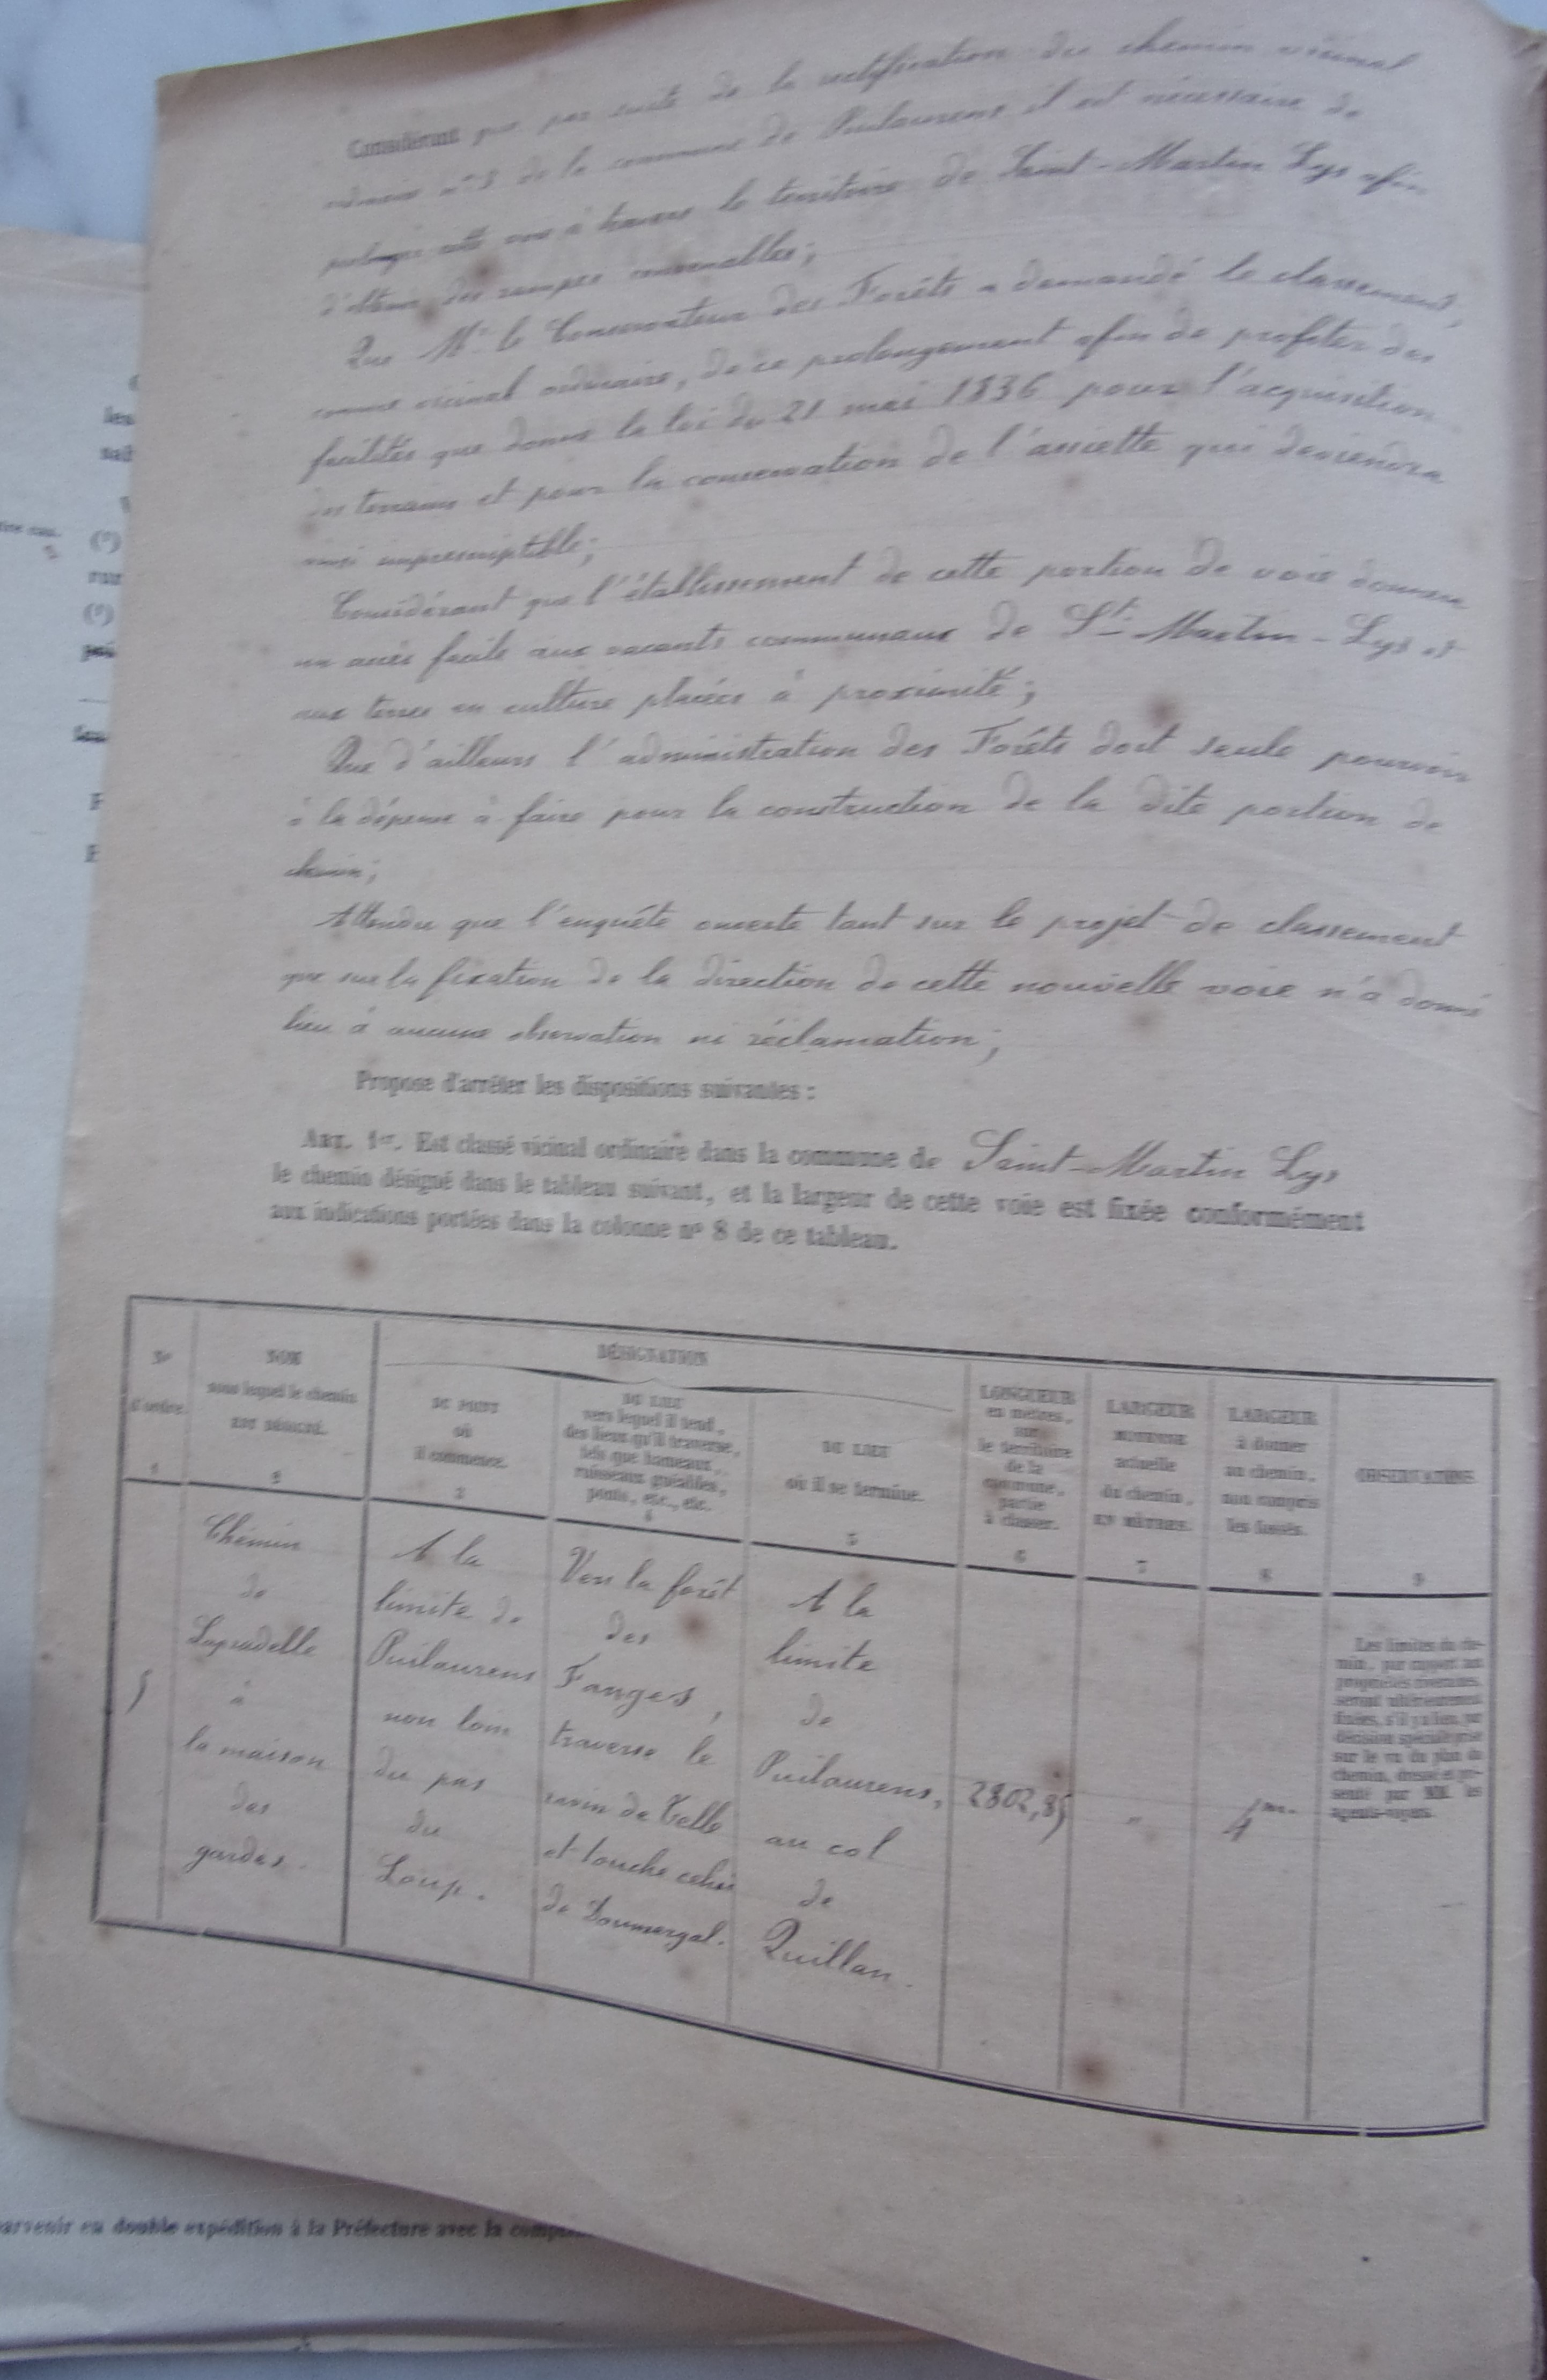 Considérant que par suite de la rectification du chemin vicinal
ordinaire n° 3 de la commune de Puilaurens il est nécessaire de
prolonger cette voie à travers le territoire de Saint-Martin Lys afin
d'obtenir des rampes convenables;
Que Mr le Conservateur des Forêts a demandé le classement,
comme vicinal ordinaire, de ce prolongement afin de profiter des
facilités que donne la loi du 21 mai 1836 pour l'acquisition
des terrains et pour la conservation de l'assiette qui deviendra
ainsi imprescriptible;
Considérant que l'établissement de cette portion de voie donnera
un accès facile aux vacants communaux de St-Martin-Lys et
aux terres en culture placées à proximité;
Que d'ailleurs l'administration des Forêts doit seule pourvoir
à la dépense à faire pour la construction de la dite portion de
chemin;
Attendu que l'enquête ouverte tant sur le projet de classement
que sur la fixation de la direction de cette nouvelle voie n'a donné
lieu à aucune observation ni réclamation;
Propose d'arrêter les dispositions suivantes :
ART. 1er. Est classé vicinal ordinaire dans la commune de Saint-Martin Lys
le chemin désigné dans le tableau suivant, et la largeur de cette voie est fixée conformément
aux indications portées dans la colonne n° 8 de ce tableau.
DÉSIGNATION
No
d'ordre.
1
NOM
sous lequel le chemin
EST DÉSIGNÉ.
2
DU POINT
où
il commence.
3
DU LIEU
vers lequel il tend,
des lieux qu'il traverse,
tels que hameaux,
ruisseaux guéables,
ponts, etc., etc.
4
DU LIEU
où il se termine.
5
LONGUEUR
en mètres,
sur
le territoire
de la
commune,
partie
à classer.
6
LARGEUR
MOYENNE
actuelle
du chemin,
EN MÈTRES.
7
LARGEUR
à donner
au chemin,
non compris
les fossés.
8
OBSERVATIONS
9
5
Chemin
de
Lapradelle
à
la maison
des
gardes.
A la
limite de
Puilaurens
non loin
du pas
du
Loup.
Vers la forêt
des
Fanges,
traverse le
ravin de
et touche celui
de
A la
limite
de
Puilaurens,
au col
de
Quillan.
2802,85
"
4m.
Les limites du che-
min, par rapport aux
propriétés riveraines,
seront ultérieurement
fixées, s'il y a lieu, par
décision spéciale prise
sur le vu du plan du
chemin, dressé et pré-
senté par MM. les
agents-voyers.
arvenir en double expédition à la Préfecture avec la